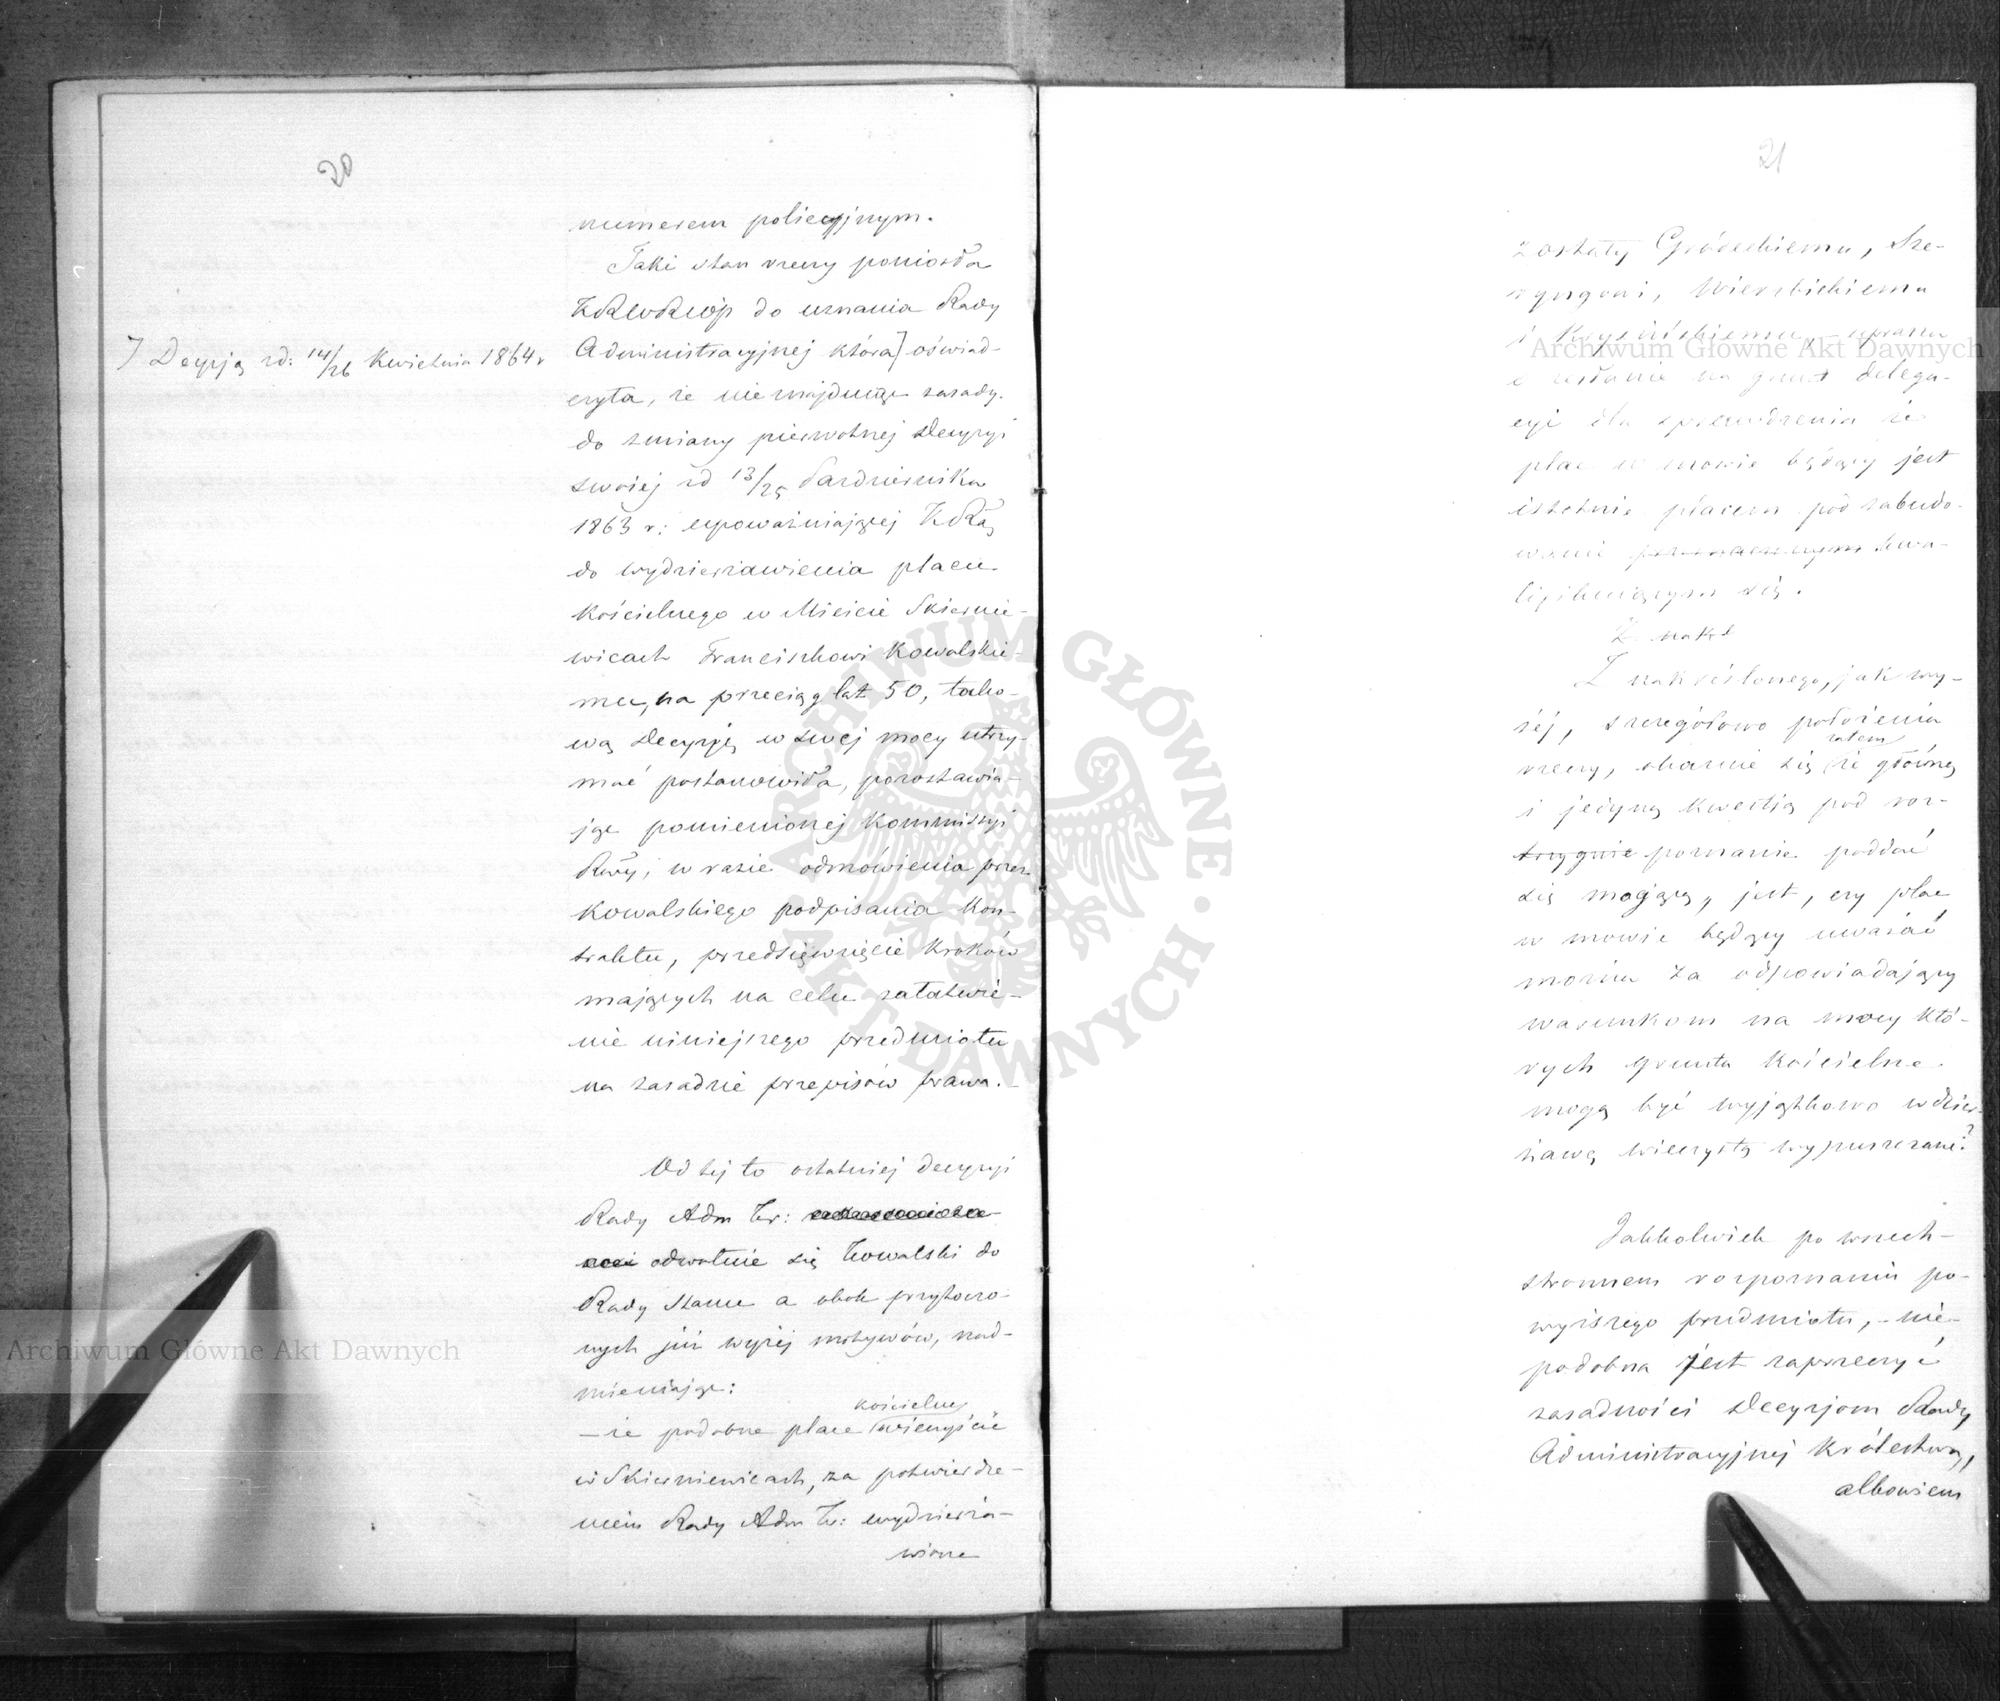 20
numerem policyjnym.
Taki stan rzeczy poniosła
do uznania Rady
Administracyjnej która] oświad-
] Decyzją zd: 14/26 Kwietnia 1864 r
czyła, że nie znajdując zasady
do zmiany pierwotnej Decyzyi
swojej zd 13/25 Pazdziernika
1863 r: upoważniającej
do wydzierżawienia placu
Kościelnego w Mieście Skiernie-
wicach Franciszkowi Kowalskie-
mu, na przeciąg lat 50, tako-
wą Decyzją w swej mocy utrzy-
mać postanowiła, pozostawia-
jąc pomienionej Kommissyi
w razie odmówienia przez
Kowalskiego podpisania Kon-
traktu, przedsięwzięcie Kroków
mających na celu załatwie-
nie niniejszego przedmiotu
na zasadzie przepisów prawa.
Od tej to ostatniej decyzyi
Rady Adm Kr:
odwołuje się Kowalski do
Rady Stanu a obok przytoczo-
nych już wyżej motywów, nad-
mieniając:
kościelne
— że podobne place wieczyście
w Skierniewicach, za potwierdze-
niem Rady Adm Kr: wydzierża-
wione
21
zostały Gródeckiemu, Sze-
ryngowi, Wierzbickiemu
i — uprasza
o zesłanie na grunt delega-
cyi dla sprawdzenia że
plac w mowie będący jest
istotnie placem pod zabudo-
wanie przeznaczonym kwa-
lifikującym się.
Z nakr
Z nakreślonego, jak wy-
żej, szczegółowo położenia
zatem
rzeczy, okazuje się że główną
i jedyną kwestią pod roz-
trzygnie poznanie poddać
się mogącą, jest, czy plac
w mowie będący uważać
można za odpowiadający
warunkom na mocy któ-
rych grunta Kościelne
mogą być wyjątkowo w dzier-
żawę wieczystą wypuszczane?
Jakkolwiek po wszech-
stronnem rozpoznaniu po-
wyższego przedmiotu, — nie-
podobna jest zaprzeczyć
zasadności Decyzjom Rady
Administracyjnej Królestwa,
albowiem
Archiwum Główne Akt Dawnych
Archiwum Główne Akt Dawnych
ARCHIWUM GŁÓWNE AKT DAWNYCH